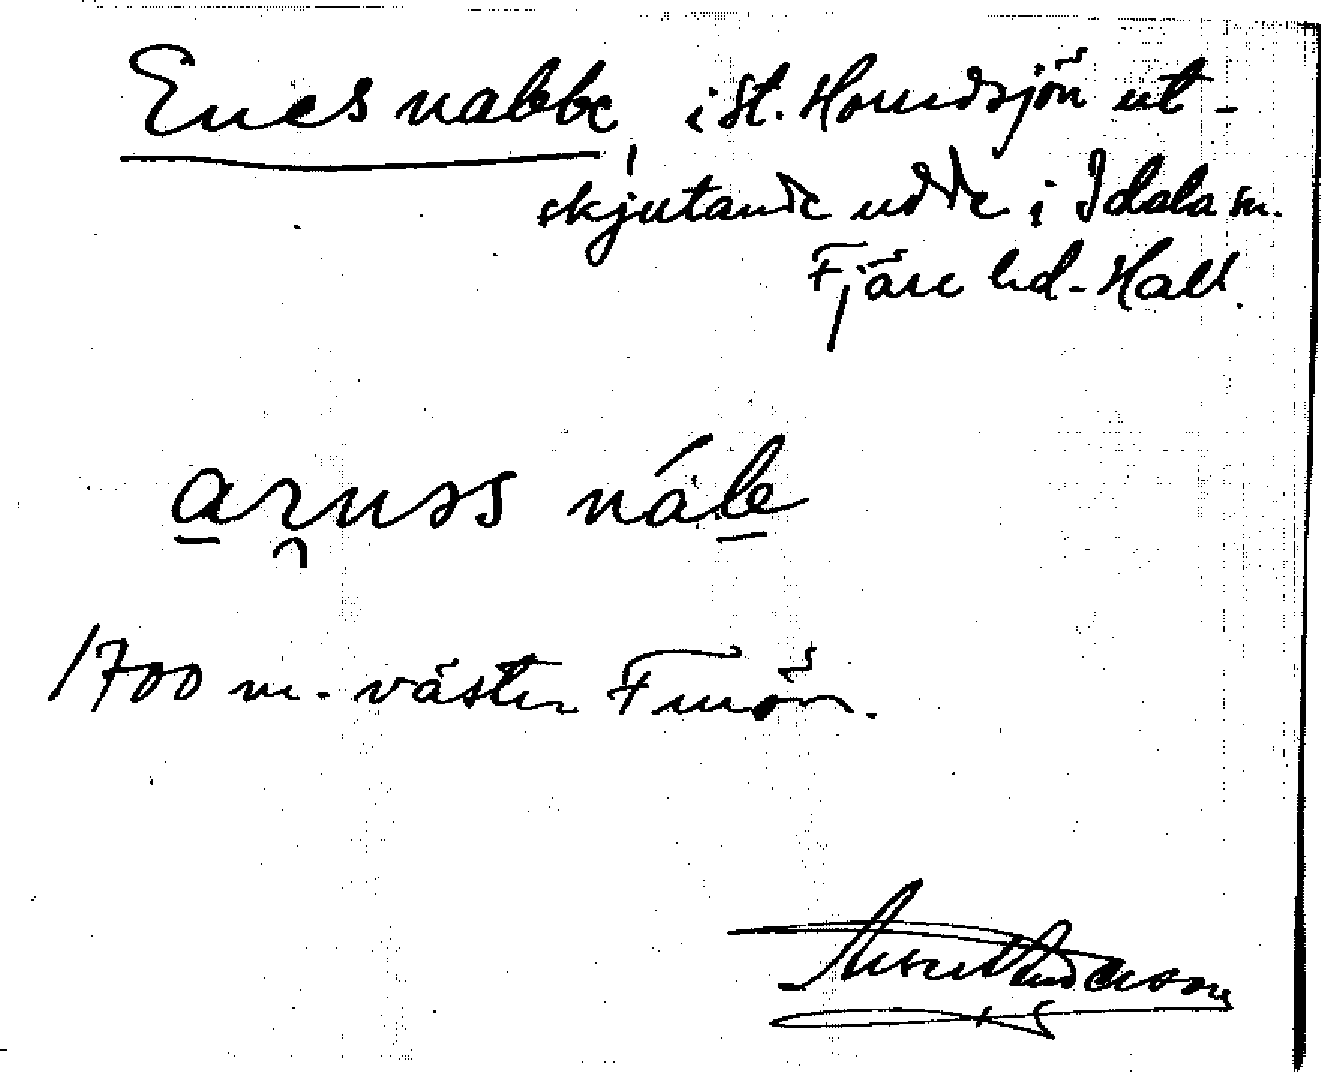 Enes nabbe, i St. Horredsjön ut-
skjutande udde i Idala sn.
Fjäre hd. Hall.
nább
1700 m. väster Furön.
Anderson